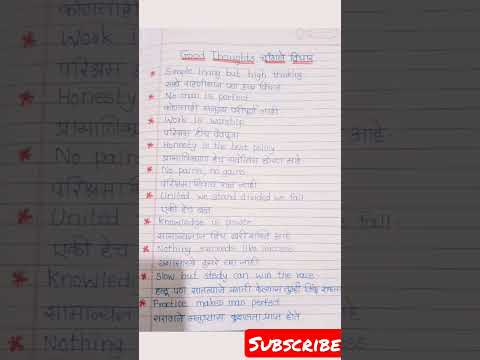 Good Thoughts चांगले विचार
* Simple living but high thinking
पण उच्च विचार
* No man is perfect
कोणताही मनुष्य परीपूर्ण नाही
* Work is worship
परिश्रम हीच देवपूजा
* Honesty is the best policy
प्रामाणिकपणा हेच सर्वोत्तम धोरण आहे
* No pains, no gains
परिश्रमाशिवाय फळ नाही
* United we stand divided we fall
एकी हेच बळ
* Knowledge is power
सामान्यज्ञान हिच खरी शक्ति आहे
* Nothing succeeds like success
यशासारखे दुसरे यश नाही
* Slow but study can win the race
हळू पण सातत्याने प्रगती केल्यास तुम्ही जिंकू शकता
* Practice makes man perfect
सरावाने मनुष्यास कुशलता प्राप्त होते
SUBSCRIBE